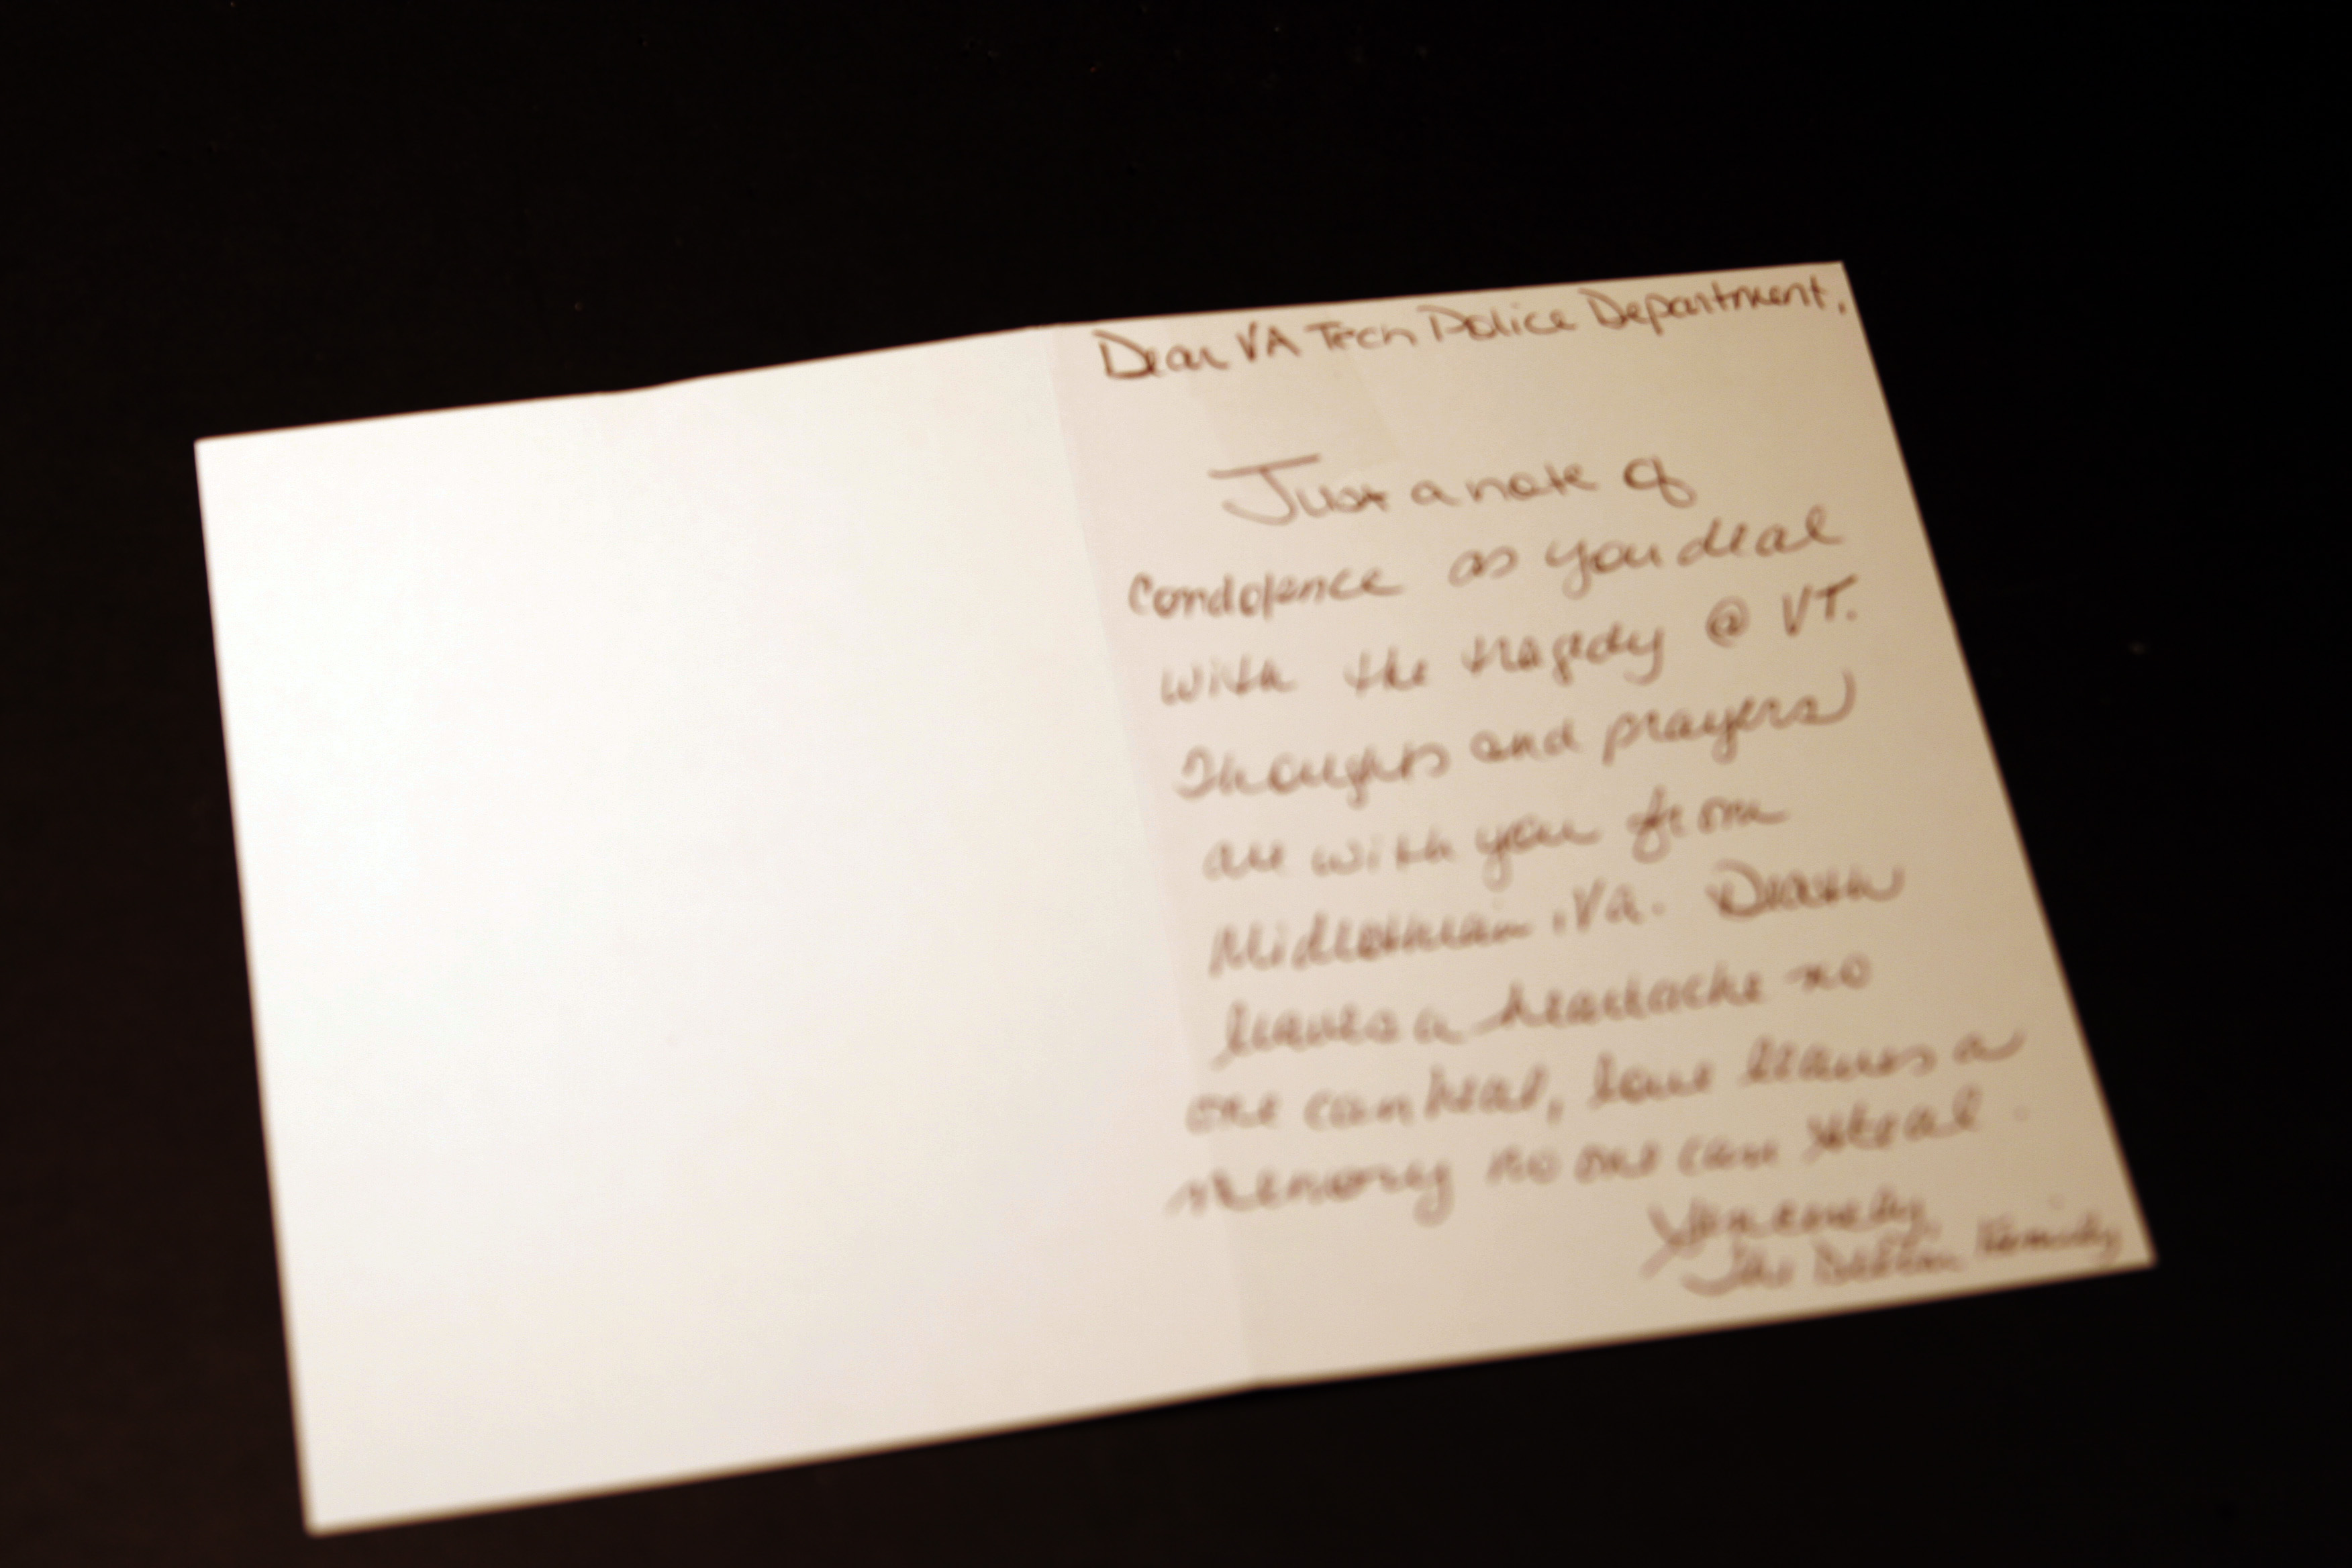 Dear VA Tech Police Department,
Just a note of
Condolence as you deal
with the tragedy @ VT.
Thoughts and prayers
are with you from
Midlothian, Va. Death
leaves a heartache no
one can heal, love leaves a
memory no one can steal.
Sincerely,
The Family